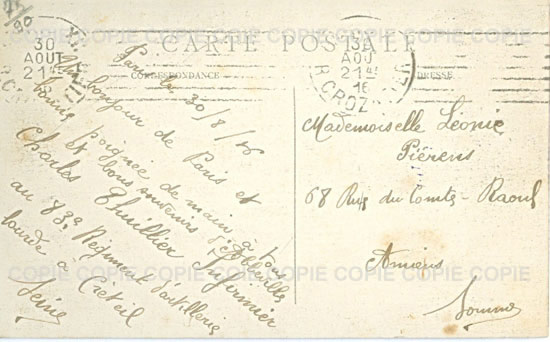 CARTE POSTALE
CORRESPONDANCE
30
AOUT
21
13A
AOU
21
16
R. CROZ
Paris le 30/8/16
Un bonjour de Paris et
bonne poignée de main à
et bons souvenirs
Charles Thuillier Infirmier
au 83e Régiment d'artillerie
lourde à Créteil
Seine
Mademoiselle Léonie
Piérens
68 Rue du Comte-Raoul
Amiens
Somme
COPIE COPIE COPIE COPIE COPIE COPIE COPIE COPIE
COPIE COPIE COPIE COPIE COPIE COPIE COPIE COPIE